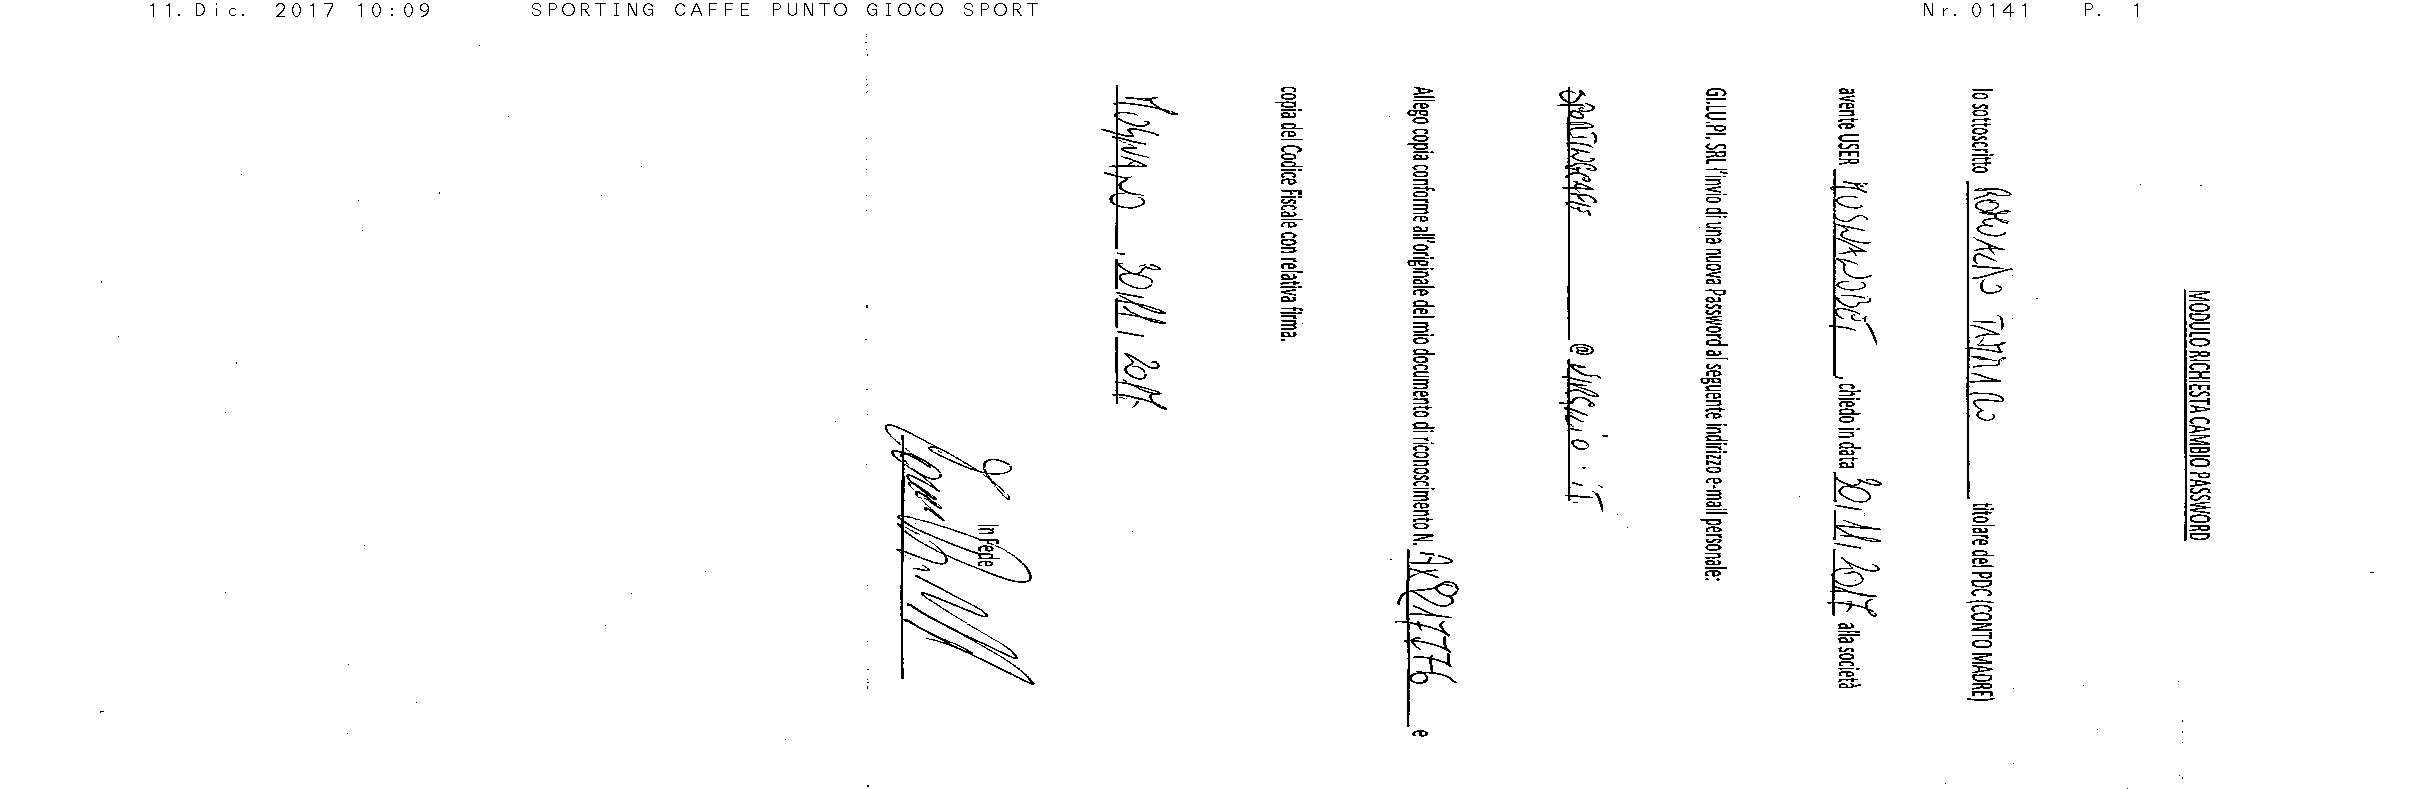 11. Dic. 2017 10:09 SPORTING CAFFE PUNTO GIOCO SPORT Nr. 0141 P. 1
MODULO RICHIESTA CAMBIO PASSWORD
Io sottoscritto titolare del PDC (CONTO MADRE)
avente USER , chiedo in data 30/11/2017 alla società
GI.LU.PI. SRL l'invio di una nuova Password al seguente indirizzo e-mail personale:
SPORTINGCAFFE @ VIRGILIO.IT
Allego copia conforme all'originale del mio documento di riconoscimento N. e
copia del Codice Fiscale con relativa firma.
30/11/2017
In Fede